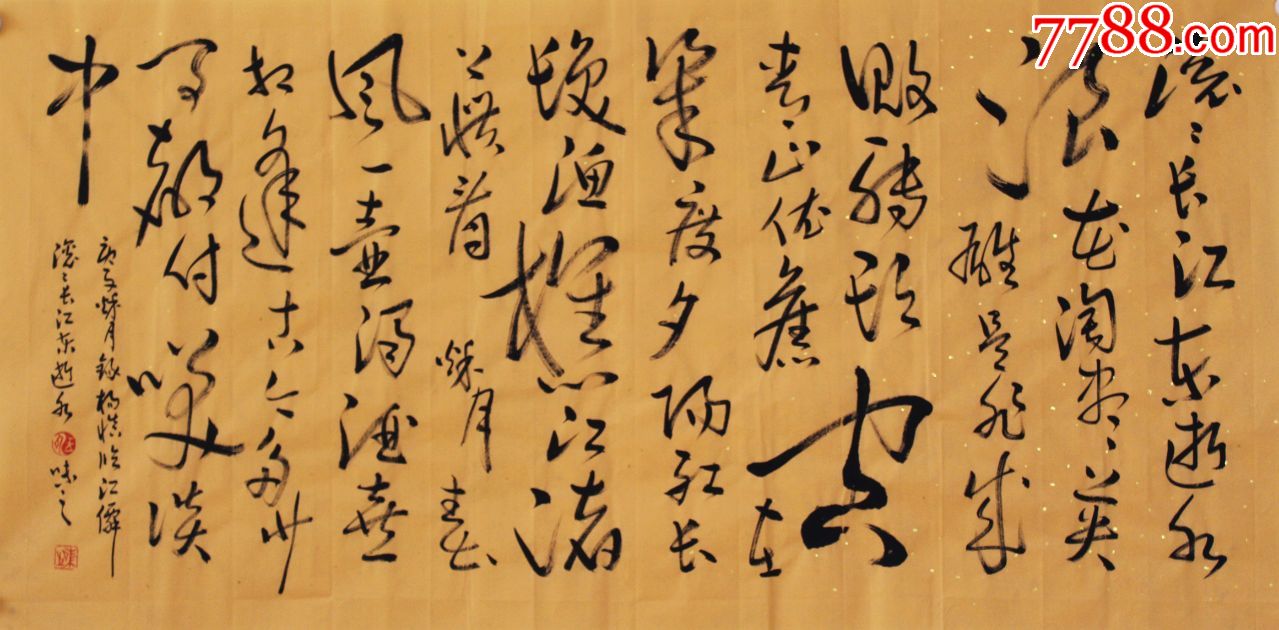 7788.com
滚〻长江东逝水
浪花淘尽英
雄是非成
败转头空
青山依旧在
几度夕阳红
髮渔樵江渚
上惯看秋月春
风一壶浊酒喜
相逢古今多少
事都付笑谈
中
秋月録杨慎临江仙
滚〻长江东逝水